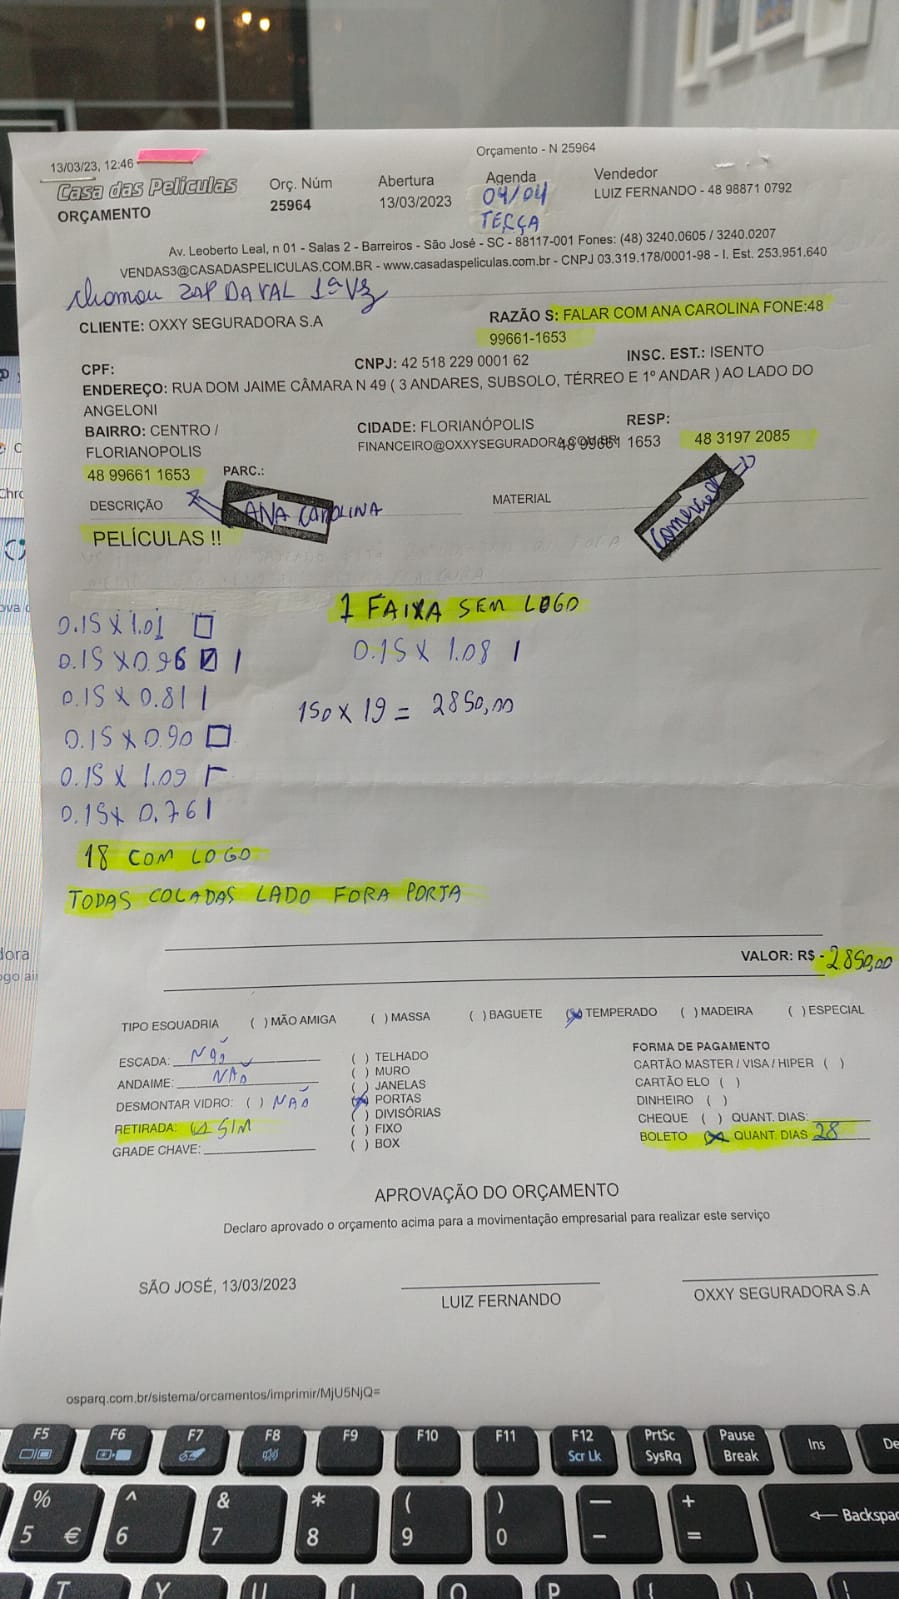 Orçamento - N 25964
13/03/23, 12:46
Casa das Películas
ORÇAMENTO
Orç. Núm
25964
Abertura
13/03/2023
Agenda
04/04
TERÇA
Vendedor
LUIZ FERNANDO - 48 98871 0792
Av. Leoberto Leal, n 01 - Salas 2 - Barreiros - São José - SC - 88117-001 Fones: (48) 3240.0605 / 3240.0207
VENDAS3@CASADASPELICULAS.COM.BR - www.casadaspeliculas.com.br - CNPJ 03.319.178/0001-98 - I. Est. 253.951.640
chamou ZAP DA VAL 1ª VZ
CLIENTE: OXXY SEGURADORA S.A
RAZÃO S: FALAR COM ANA CAROLINA FONE:48
99661-1653
CPF:
CNPJ: 42 518 229 0001 62
INSC. EST.: ISENTO
ENDEREÇO: RUA DOM JAIME CÂMARA N 49 ( 3 ANDARES, SUBSOLO, TÉRREO E 1º ANDAR ) AO LADO DO
ANGELONI
BAIRRO: CENTRO /
FLORIANOPOLIS
CIDADE: FLORIANÓPOLIS
RESP:
FINANCEIRO@OXXYSEGURADORA.COM.BR
48 99661 1653
48 3197 2085
48 99661 1653
PARC.:
DESCRIÇÃO
ANA CAROLINA
MATERIAL
Comercial
PELÍCULAS !!
1 FAIXA SEM LOGO
0.15 X 1.01
0.15 X 0.96
0.15 X 0.81
0.15 X 0.90
0.15 X 1.09
0.15 X 0.76
0.15 X 1.08
150 X 19 = 2850,00
18 COM LOGO
TODAS COLADAS LADO FORA PORTA
VALOR: R$ - 2850,00
TIPO ESQUADRIA ( ) MÃO AMIGA ( ) MASSA ( ) BAGUETE (X) TEMPERADO ( ) MADEIRA ( ) ESPECIAL
ESCADA: NÃO
ANDAIME: NÃO
DESMONTAR VIDRO: ( ) NÃO
RETIRADA: SIM
GRADE CHAVE:
( ) TELHADO
( ) MURO
( ) JANELAS
(X) PORTAS
( ) DIVISÓRIAS
( ) FIXO
( ) BOX
FORMA DE PAGAMENTO
CARTÃO MASTER / VISA / HIPER ( )
CARTÃO ELO ( )
DINHEIRO ( )
CHEQUE ( ) QUANT. DIAS:
BOLETO (X) QUANT. DIAS 28
APROVAÇÃO DO ORÇAMENTO
Declaro aprovado o orçamento acima para a movimentação empresarial para realizar este serviço
SÃO JOSÉ, 13/03/2023
LUIZ FERNANDO
OXXY SEGURADORA S.A
osparq.com.br/sistema/orcamentos/imprimir/MjU5NjQ=
F5 F6 F7 F8 F9 F10 F11 F12 PrtSc Pause Ins De
Scr Lk SysRq Break
% ^ & * ( ) — +
5 € 6 7 8 9 0 – = Backspac
T Y U I O P { }